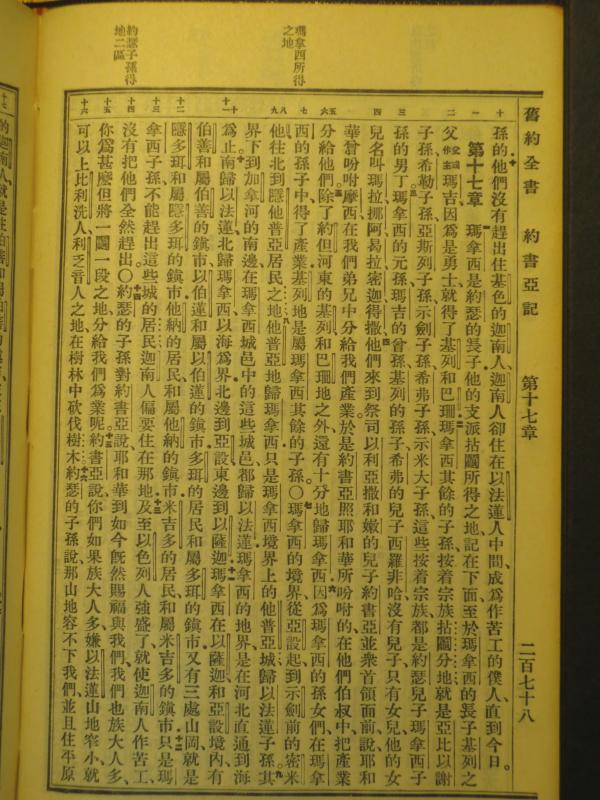 舊約全書 約書亞記 第十七章 二百七十八
瑪拿西所得之地
約瑟子孫得地二區
孫的他們沒有趕出住基色的迦南人迦南人卻住在以法蓮人中間成爲作苦工的僕人直到今日。
第十七章 瑪拿西是約瑟的長子他的支派拈鬮所得之地記在下面至於瑪拿西的長子基列之
父瑪吉因爲是勇士就得了基列和巴珊瑪拿西其餘的子孫按着宗族拈鬮分地就是亞比以謝
子孫希勒子孫亞斯列子孫示劍子孫希弗子孫示米大子孫這些按着宗族都是約瑟兒子瑪拿西子
孫的男丁瑪拿西的元孫瑪吉的曾孫基列的孫子希弗的兒子西羅非哈沒有兒子只有女兒他的女
兒名叫瑪拉挪阿曷拉密迦得撒他們來到祭司以利亞撒和嫩的兒子約書亞並衆首領面前說耶和
華曾吩咐摩西在我們弟兄中分給我們產業於是約書亞照耶和華所吩咐的在他們伯叔中把產業
分給他們除了約但河東的基列和巴珊地之外還有十分地歸瑪拿西因爲瑪拿西的孫女們在瑪拿
西的孫子中得了產業基列地是屬瑪拿西其餘的子孫〇瑪拿西的境界從亞設起到示劍前的密米
他往北到隱他普亞居民之地他普亞地歸瑪拿西只是瑪拿西境界上的他普亞城歸以法蓮子孫其
界下到加拿河的南邊在瑪拿西城邑中的這些城邑都歸以法蓮瑪拿西的地界是在河北直通到海
爲止南歸以法蓮北歸瑪拿西以海爲界北邊到亞設東邊到以薩迦瑪拿西在以薩迦和亞設境內有
伯善和屬伯善的鎮市以伯蓮和屬以伯蓮的鎮市多珥的居民和屬多珥的鎮市又有三處山岡就是
隱多珥和屬隱多珥的鎮市他納的居民和屬他納的鎮市米吉多的居民和屬米吉多的鎮市只是瑪
拿西子孫不能趕出這些城的居民迦南人偏要住在那地及至以色列人強盛了就使迦南人作苦工
沒有把他們全然趕出〇約瑟的子孫對約書亞說耶和華到如今旣然賜福與我們我們也族大人多
你爲甚麽但將一鬮一段之地分給我們爲業呢約書亞說你們如果族大人多嫌以法蓮山地窄小就
可以上比利洗人利乏音人之地在樹林中砍伐樹木約瑟的子孫說那山地容不下我們並且住平原